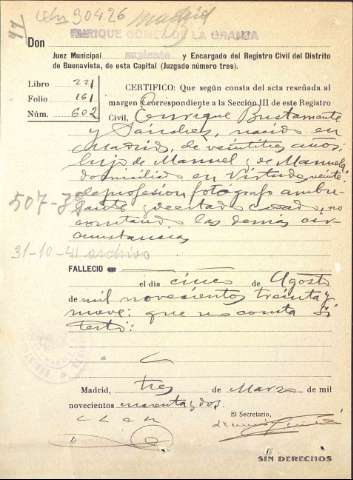 30426 Madrid
77
ENRIQUE GOMEZ DE LA GRANJA
Don
Juez Municipal suplente y Encargado del Registro Civil del Distrito
de Buenavista, de esta Capital (Juzgado número tres).
Libro 221
Folio 161
Núm. 602
CERTIFICO: Que según consta del acta reseñada al
margen Correspondiente a la Sección III de este Registro
Civil, Enrique Bustamante
y Sánchez, nacido en
Madrid, de veintitres años
hijo de Manuel y de Manuela
domiciliado en Virtudes veinte
de profesión fotógrafo ambu-
lante y de estado casado, no
constando las demás cir-
cunstancias
507-3
31-10-41 archivo
FALLECIO
el día cinco de Agosto
de mil novecientos treinta y
nueve: que no consta si
testó:
Madrid, tres de Marzo de mil
novecientos cuarenta y dos
El Secretario,
SIN DERECHOS